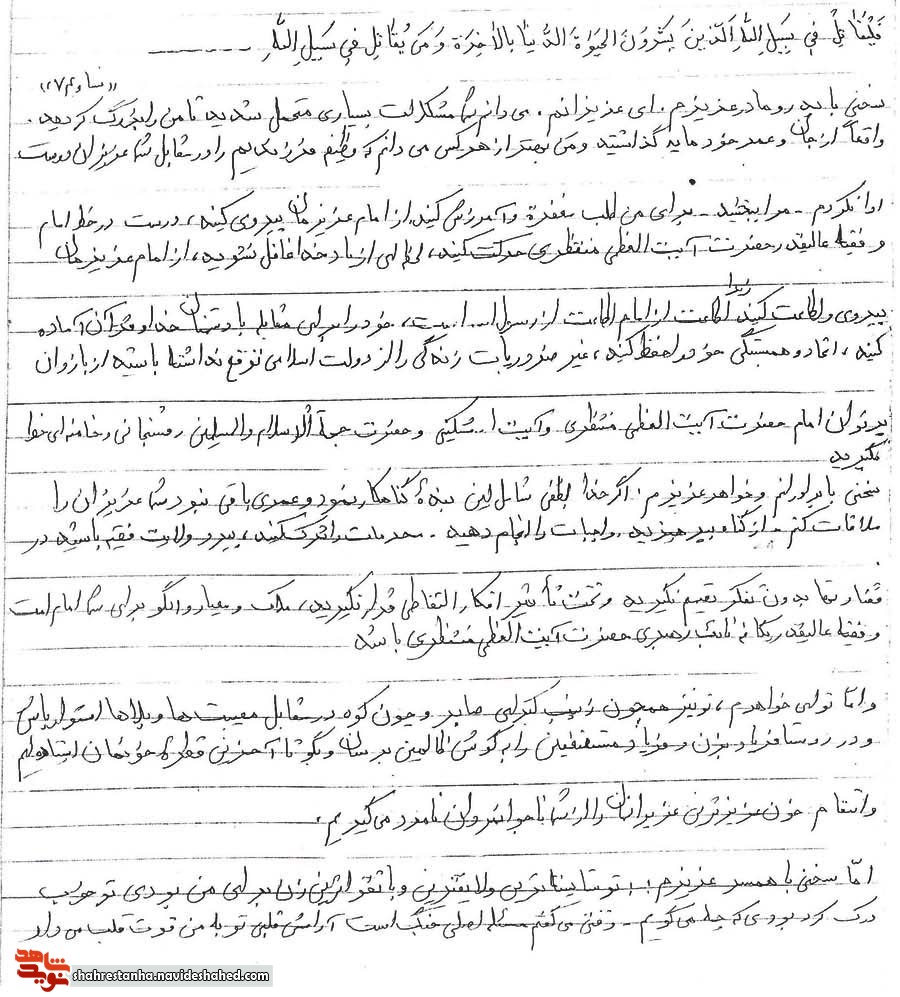 فَلْيُقاتِلْ فِي سَبِيلِ اللَّهِ الَّذِينَ يَشْرُونَ الْحَيَاةَ الدُّنْيَا بِالْآخِرَةِ وَمَنْ يُقَاتِلْ فِي سَبِيلِ اللَّهِ ــــــ
«نساء ۷۴»
سخنی با پدر و مادر عزیزم. ای عزیزانم. می دانم شما مشکلات بسیاری متحمل شدید تا من را بزرگ کردید.
واقعاً از جان و عمر خود مایه گذاشتید و من بهتر از هر کس می دانم که وظیفه فرزندیم را در مقابل شما عزیزان درست
ادا نکردم - مرا ببخشید - برای من طلب مغفرت و آمرزش کنید. از امام عزیزمان پیروی کنید، درست در خط امام
و فقیه عالیقدر حضرت آیت العظمی منتظری حرکت کنید، لحظه ای از یاد خدا غافل نشوید، از امام عزیزمان
پیروی و اطاعت کنید زیرا اطاعت از امام اطاعت از رسول الله است، خود را برای مقابله با دشمنان خدا و قرآن آماده
کنید، اتحاد و همبستگی خود را حفظ کنید، غیر ضروریات زندگی را از دولت اسلامی توقع نداشته باشید از بازوان
پرتوان امام حضرت آیت العظمی منتظری و آیت ا.. مشکینی و حضرت حجة الاسلام والمسلمین رفسنجانی و خامنه ای خط
بگیرید
سخنی با برادرانم و خواهر عزیزم: اگر خدا لطفی شامل این بندهٔ گناهکار نمود و عمری باقی نبود شما عزیزان را
ملاقات کنم. از گناه بپرهیزید. واجبات را انجام دهید. محرمات را ترک کنید، پیرو ولایت فقیه باشید در
رفتارتان بدون تفکر تصمیم نگیرید و تحت تأثیر افکار التقاطی قرار نگیرید، ملاک و معیار و الگو برای شما امام است
و فقیه عالیقدر یگانه نائب رهبری حضرت آیت العظمی منتظری باشد
و امّا تو ای خواهرم، تو نیز همچون زینب کبرای صابر و چون کوه در مقابل مصیبت ها و بلاها استوار باش
و در رستا فریاد بزن و فریاد مستضعفین را به گوش ظالمین برسان و بگو تا آخرین قطرهٔ خونمان ایستاده ایم
و انتقام خون عزیزترین عزیزانمان را از شما ناجوانمردان نامرد می گیریم.
امّا سخنی با همسر عزیزم: تو شایسته ترین و لایقترین و باتقواترین زن برای من بودی تو خوب
درک کرده بودی که چه می گویم - وقتی می گفتم مسئله اصلی جنگ است آرامش قلبی تو به من قوت قلب می داد
نوید شاهد
shahrestanha.navideshahed.com